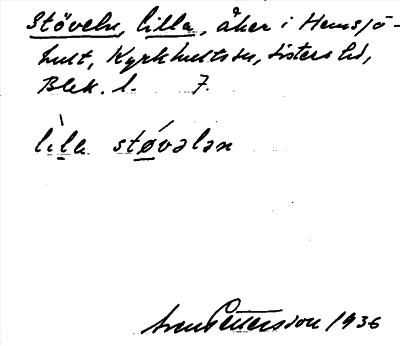 Stöveln, lilla, åker i Hemsjö-
hult, Kyrkhults sn, Listers hd,
Blek. l. 7.
lìla stǿvələn
Sven Pettersson 1936